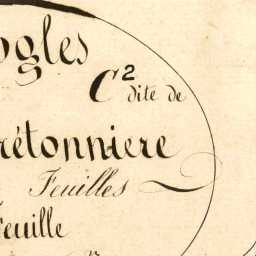 ogles
C² dite de
rétonniere
Feuilles
Feuille